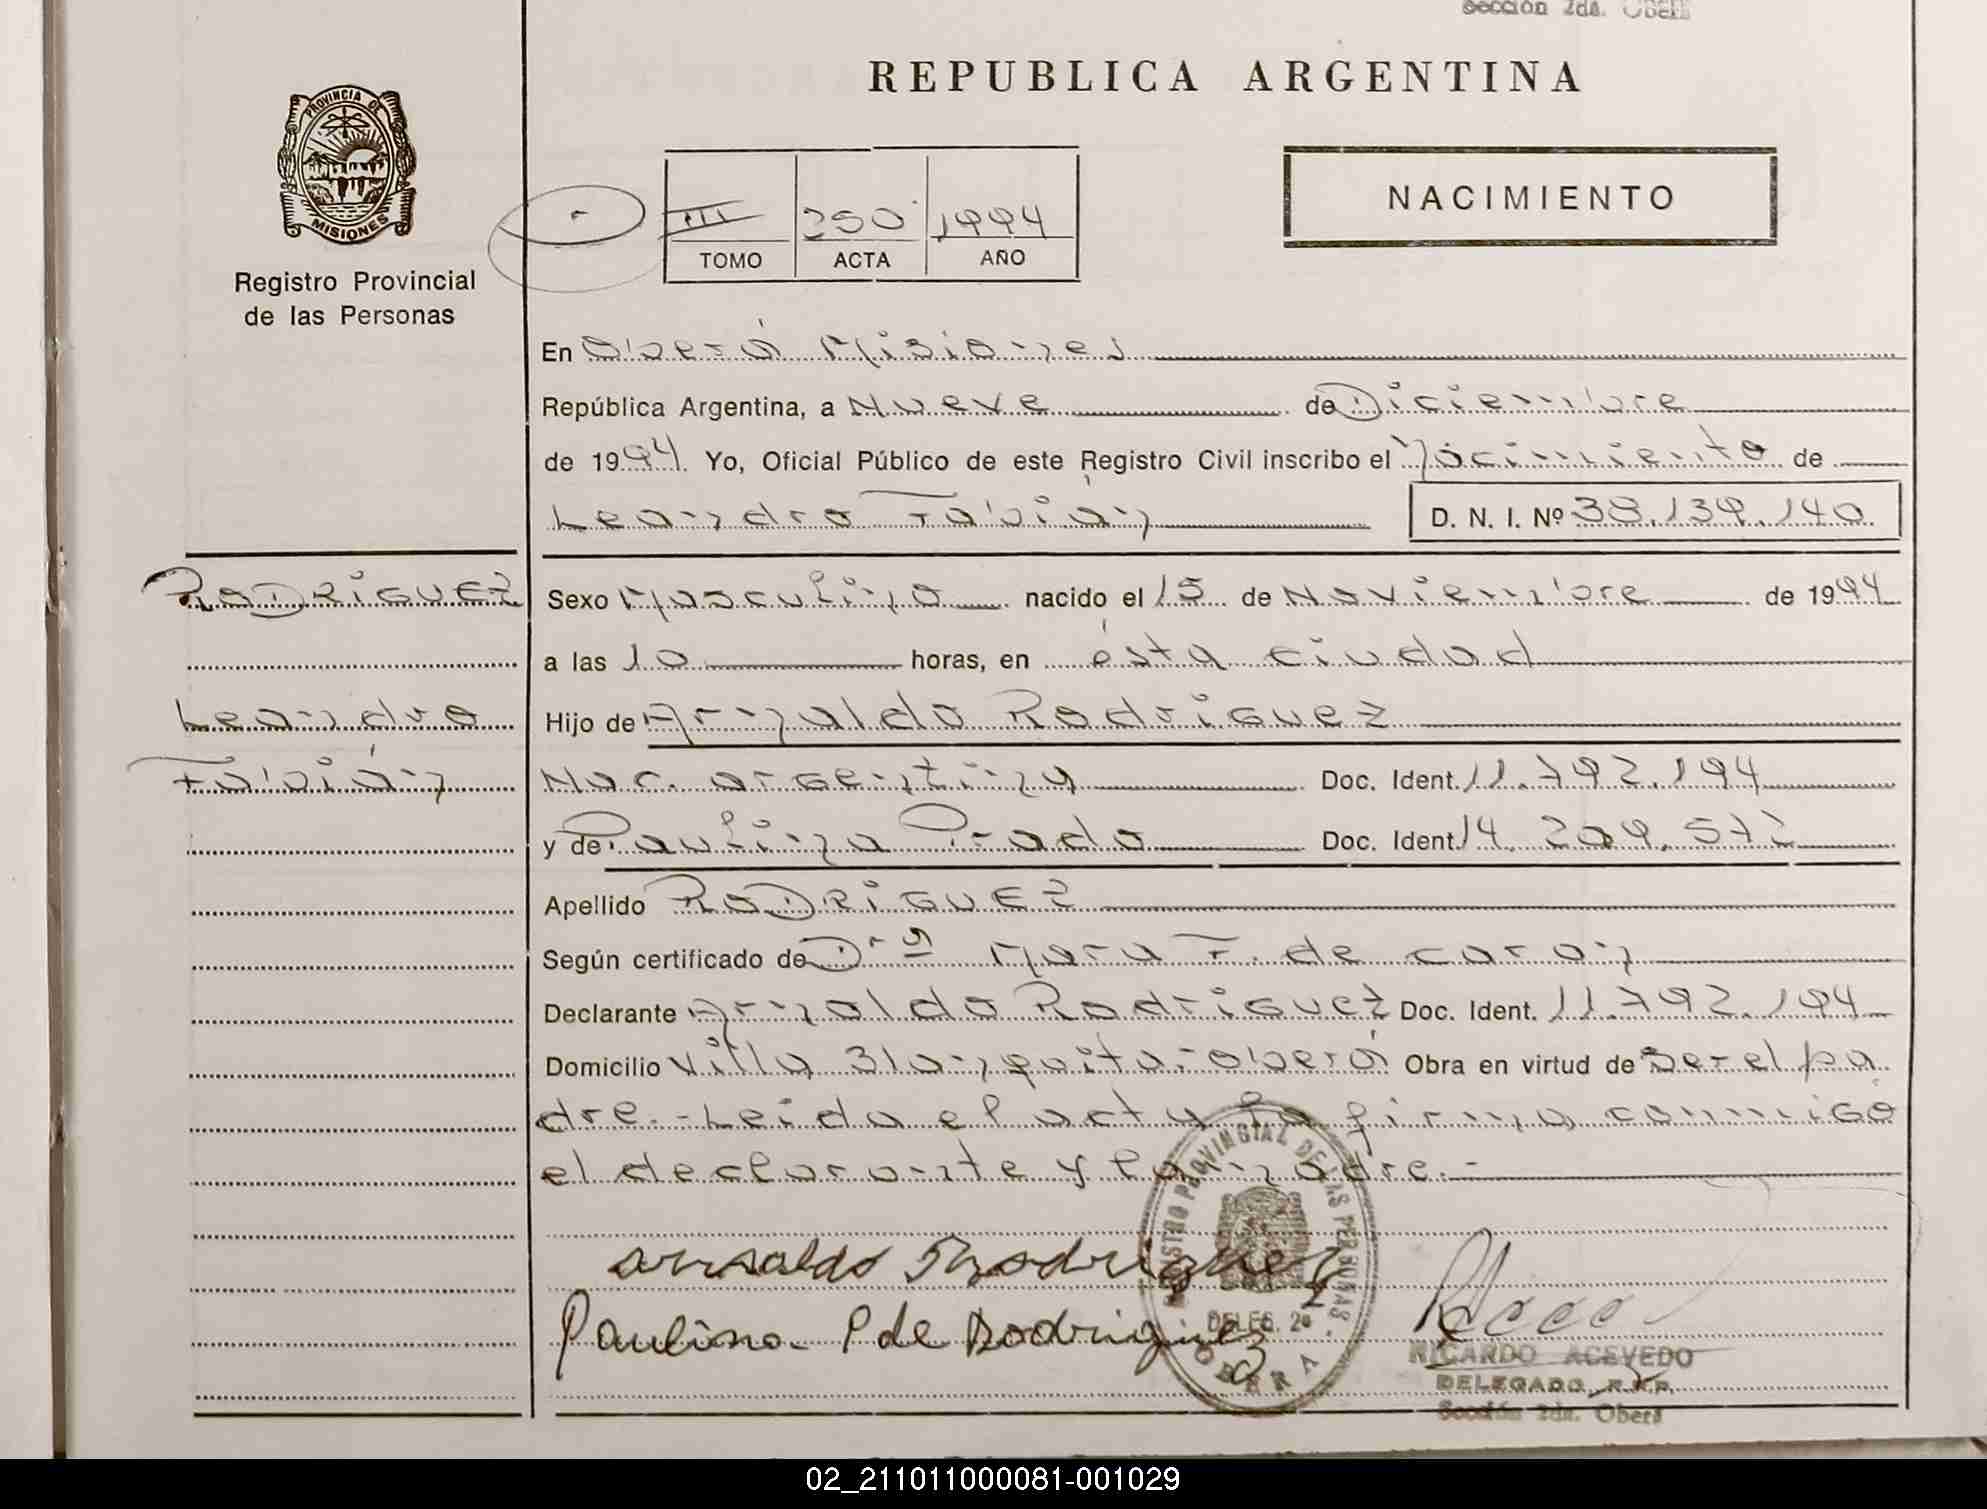 Sección 2da. Oberá
REPUBLICA ARGENTINA
PROVINCIA DE
MISIONES
Registro Provincial
de las Personas
III 250 1994
TOMO ACTA AÑO
NACIMIENTO
En Oberá Misiones
República Argentina, a Nueve de Diciembre
de 1994. Yo, Oficial Público de este Registro Civil inscribo el Nacimiento de
Leandro Fabián D. N. I. Nº 38.139.140
RODRIGUEZ
Sexo Masculino nacido el 15 de Noviembre de 1994
a las 10 horas, en ésta ciudad
Leandro
Hijo de Arnaldo Rodriguez
Fabián
Nac. argentina Doc. Ident. 11.792.194
y de Paulina Prado Doc. Ident. 14.209.572
Apellido RODRIGUEZ
Según certificado de Drª Mara F. de caron
Declarante Arnaldo Rodriguez Doc. Ident. 11.792.194
Domicilio Villa Blanquita-Oberá Obra en virtud de ser el pa
dre.-Leida el acta la firma conmigo
el declarante y la madre.-
arnaldo Rrodriguez
Paulina P de Rodriguez
REGISTRO PROVINCIAL DE LAS PERSONAS
DELEG. 2ª
OBERA
RICARDO ACEVEDO
DELEGADO R.P.P.
Sección 2da. Oberá
02_211011000081-001029